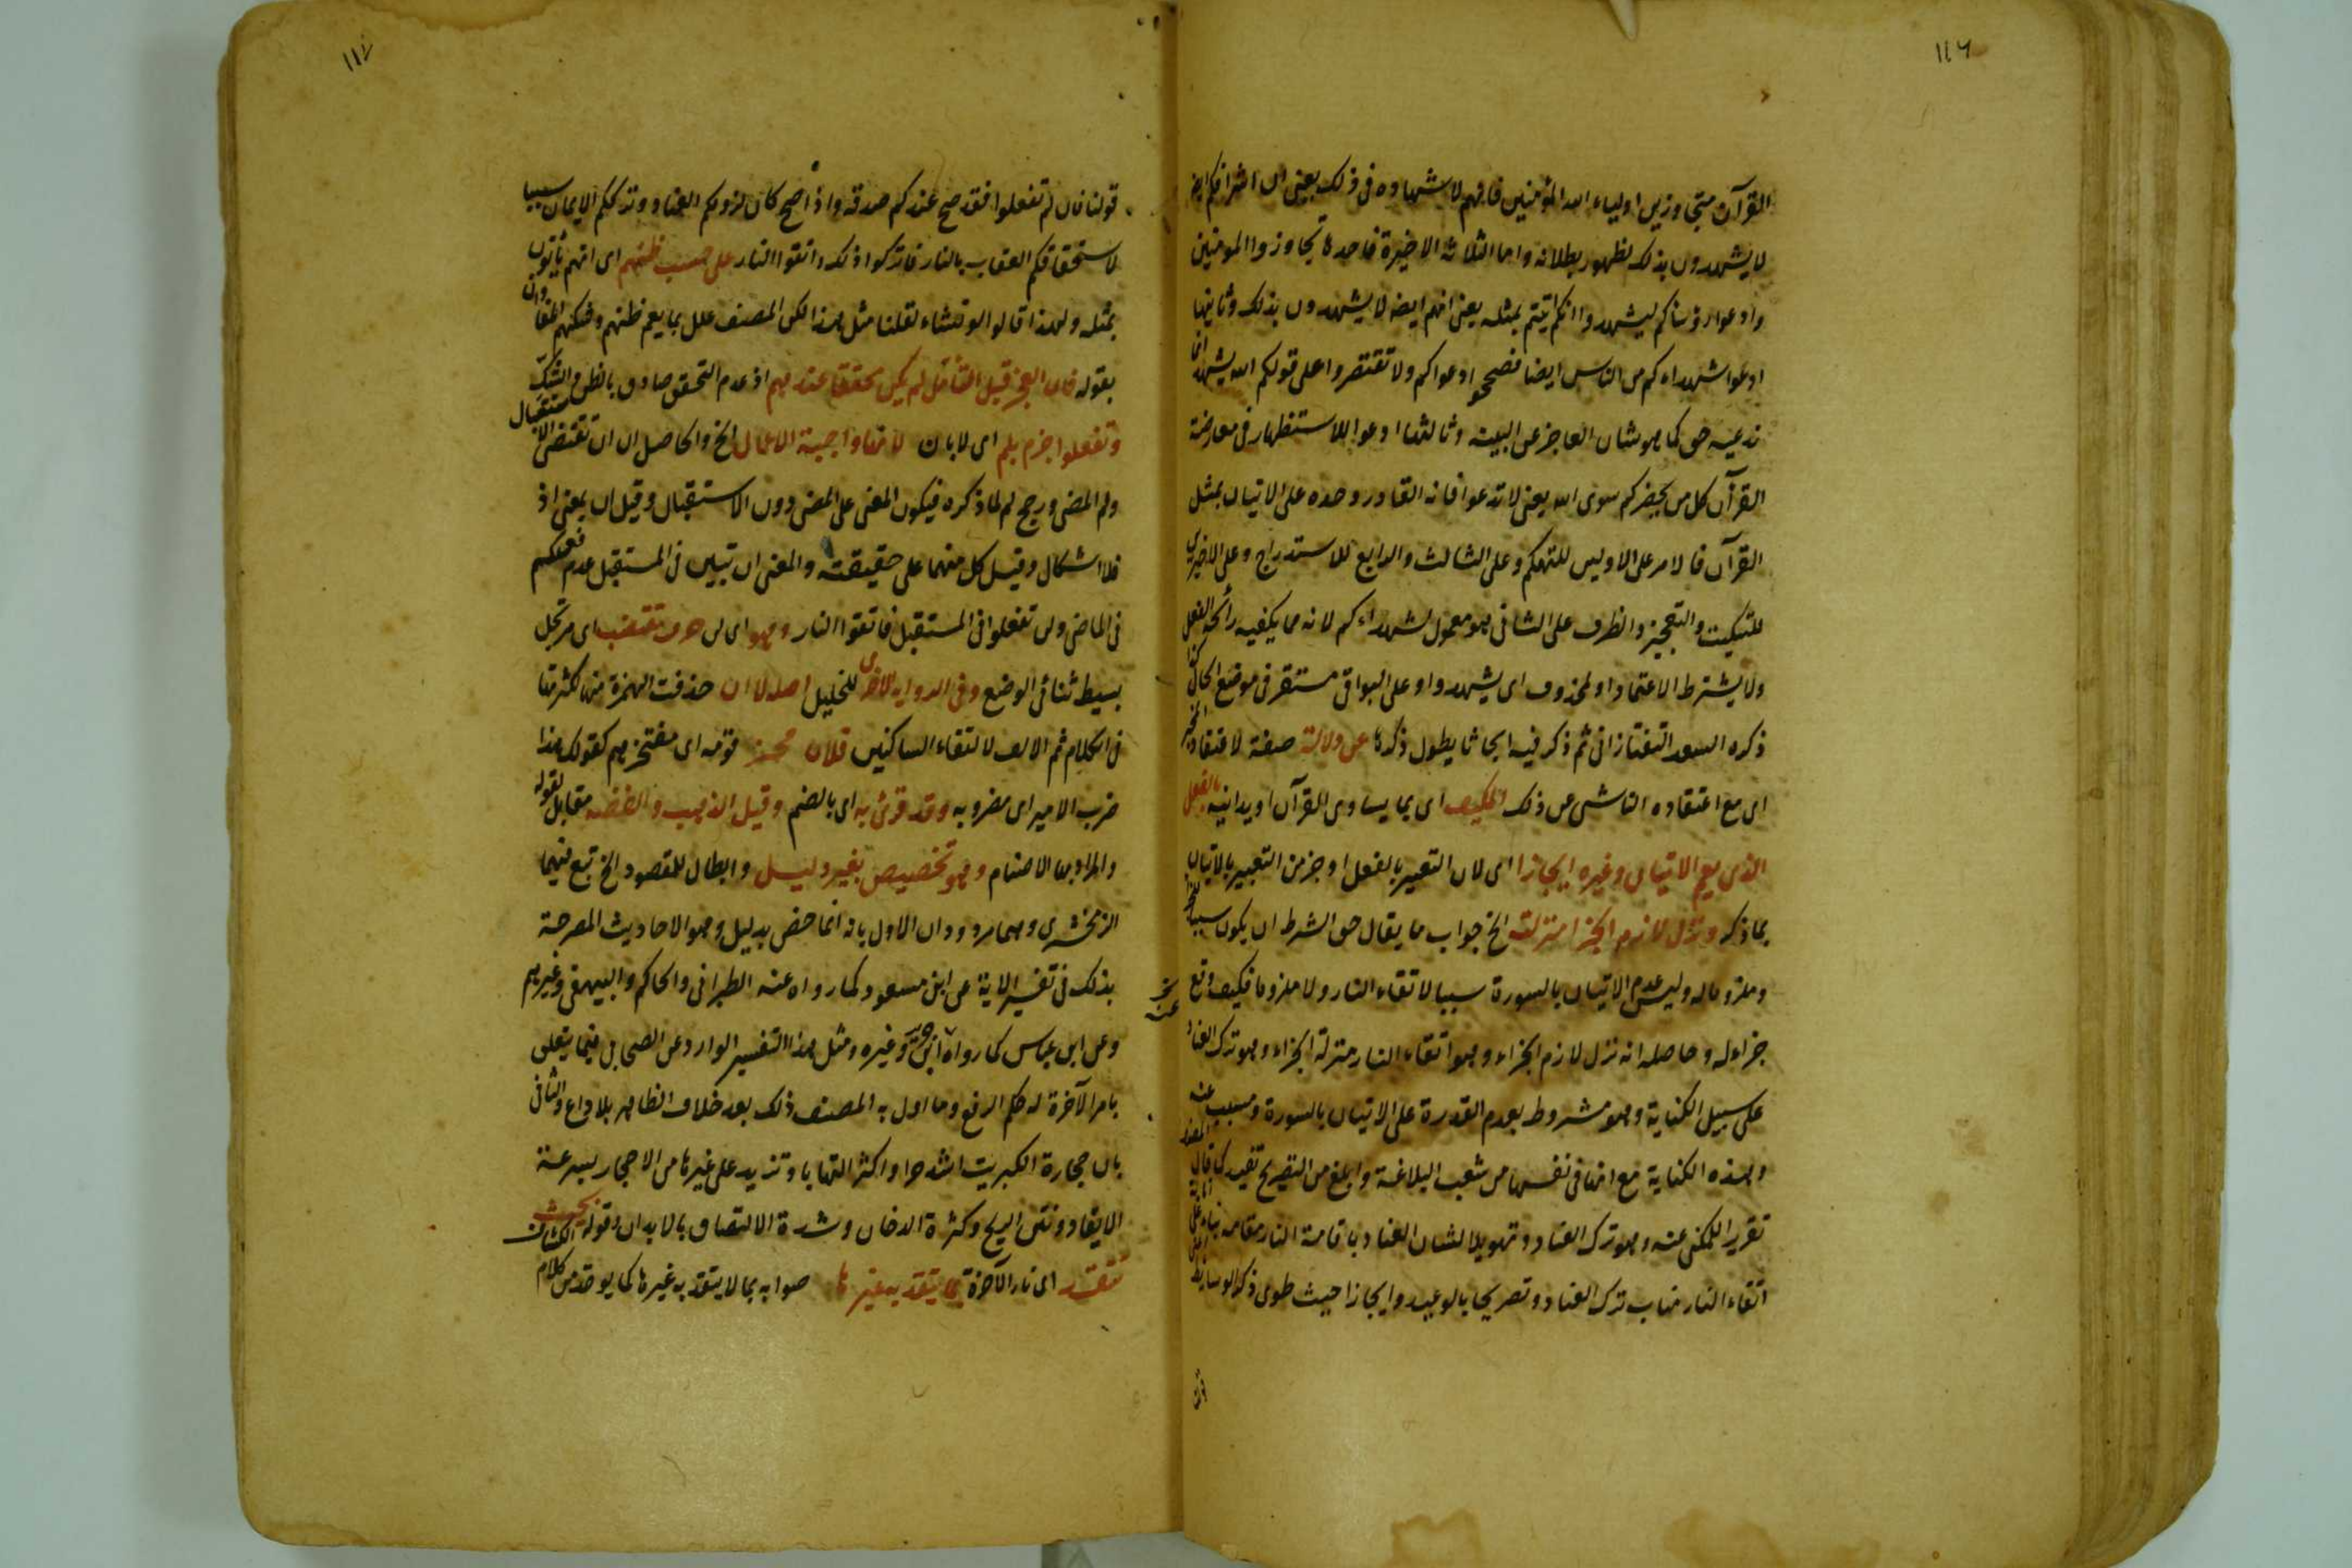 ١١٦
القرآن متجاوزين اولياء الله المؤمنين فانهم لا شهادة فى ذلك يعنى ان اشرافكم ايضا
لا يشهدون بذلك لظهور بطلانه واما الثلاثة الاخيرة فاحدها تجاوزوا المومنين
وادعوا رؤساكم ليشهدوا انكم اتيتم بمثله يعنى انهم ايضا لا يشهدون بذلك وثانيها
ادعوا شهداءكم من الناس ايضا فصححوا دعواكم ولا تقتصروا على قولكم الله يشهد انما
ندعيه حق كما هو شان العاجز عن البينة وثالثها ادعوا للاستظهار فى معارضة
القرآن كل من يحضركم سوى الله يعنى لا تدعوا فانه القادر وحده على الاتيان بمثل
القرآن فالامر على الاولين للتهكم وعلى الثالث والرابع للاستدراج وعلى الاخيرين
للتبكيت والتعجيز والظرف على الثانى هو معمول لشهداءكم لانه مما يكفيه رائحة الفعل
ولا يشترط الاعتماد او لمحذوف اى يشهدوا وعلى البواقى مستقر فى موضع الحال كذا
ذكره السعد التفتازانى ثم ذكر فيه ابحاثا يطول ذكرها عن دلالة صفة لاعتقاد المخبر
اى مع اعتقاده الناشى عن ذلك المكيف اى بما يساوى القرآن او يدانيه بالفعل
الذى يعم الاتيان وغيره ايجازا اى لان التعبير بالفعل اوجز من التعبير بالاتيان
بما ذكر ونزل لازم الجزا منزلته الخ جواب ما يقال حق الشرط ان يكون سببا للجزاء
وملزوما له وليس عدم الاتيان بالسورة سببا لاتقاء النار ولا ملزوما فكيف وقع
جزاء له وحاصله انه نزل لازم الجزاء وهو اتقاء النار منزلة الجزاء وهو ترك العناد
على سبيل الكناية وهو مشروط بعدم القدرة على الاتيان بالسورة ومسبب عنه
وهذه الكناية مع انها فى نفسها من شعب البلاغة وابلغ من التصريح تفيد كما قال المصنف
تقرير المكنى عنه وهو ترك العناد وتهويلا لشان العناد باقامة النار مقامه بناء على
اتقاء النار مناب ترك العناد وتصريحا بالوعيد وايجازا حيث طوى ذكر الوسايط
١١٧
قولنا فان لم تفعلوا فقد صح عندكم صدقه واذا صح كان لزومكم العناد وترككم الايمان سببا
لاستحقاقكم العقاب بالنار فاتركوا ذلك واتقوا النار على حسب ظنهم اى انهم ياتون
بمثله ولهذا قالوا لو نشاء لقلنا مثل هذا لكن المصنف علل بما يعم ظنهم وشكهم
بقوله فان العجز قبل التامل لم يكن محققا عندهم اذ عدم التحقق صادق بالظن والشك
وتفعلوا جزم بلم اى لا بان لانها واجبة الاعمال الخ والحاصل ان ان تقتضى الاستقبال
ولم المضى ورجح لم لما ذكره فيكون المعنى على المضى دون الاستقبال وقيل ان بمعنى اذ
فلا اشكال وقيل كل منهما على حقيقته والمعنى ان تبين فى المستقبل عدم فعلكم
فى الماضى ولن تفعلوا فى المستقبل فاتقوا النار وهو اى لن حرف مقتضب اى مرتجل
بسيط ثنائى الوضع وفى الرواية الاخرى للخليل اصله لا ان حذفت الهمزة منها لكثرتها
فى الكلام ثم الالف لالتقاء الساكنين فلان فخر قومه اى مفتخر بهم كقولك هذا
ضرب الامير اى مضروبه وقد قرئ به اى بالضم وقيل الذهب والفضة مقابل لقوله
والمراد بها الاصنام وهو تخصيص بغير دليل وابطال للمقصود الخ تبع فيهما
الزمخشرى وهما مردودان الاول بانه انما خص بدليل وهو الاحاديث المصرحة
بذلك فى تفسير الاية عن ابن مسعود كما رواه عنه الطبرانى والحاكم والبيهقى وغيرهم
وعن ابن عباس كما رواه ابن جرير وغيره ومثل هذا التفسير الوارد عن الصحابى فيما يتعلق
بامر الآخرة له حكم الرفع وما اول به المصنف ذلك بعد خلاف الظاهر بلا داع والثانى
بان حجارة الكبريت اشد حرا واكثر التهابا وتزيد على غيرها من الاحجار بسرعة
الايقاد ونتن الريح وكثرة الدخان وشدة الالتصاق بالابدان وقوله بحيث
تتقد اى نار الآخرة بما يتقد به غيرها صوابه بما لا يتقد به غيرها كما يوخذ من كلام الكشاف